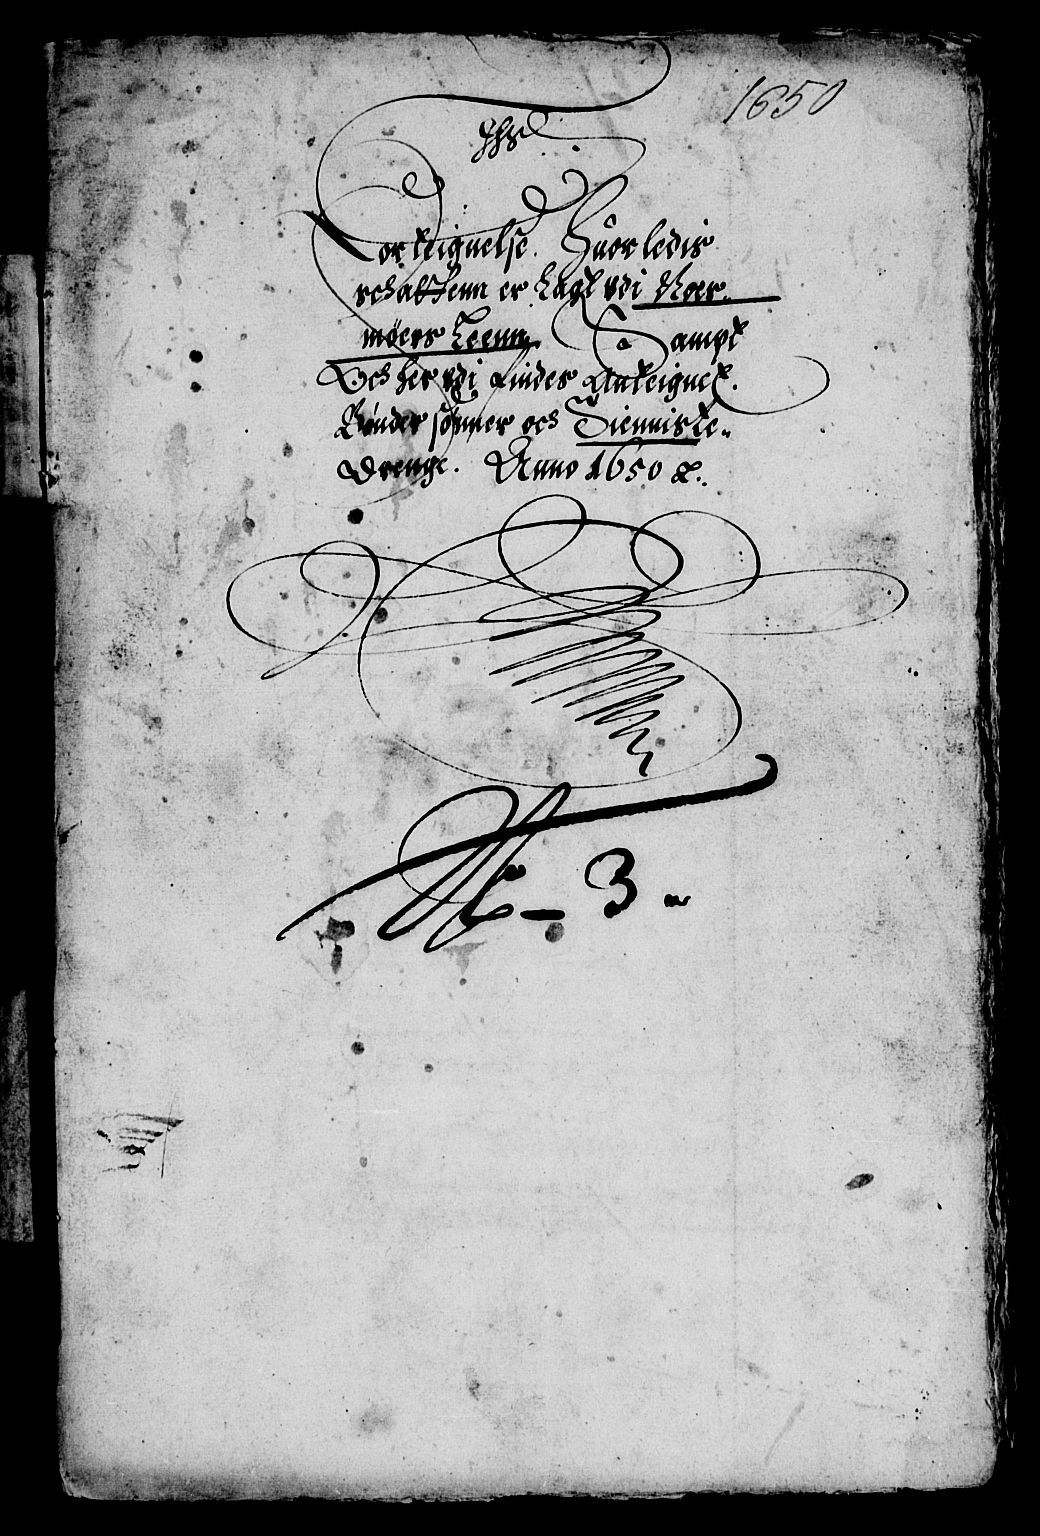 1650
Jhs
Forteignelse. Huorledis
schattenn er lagt udi Noer
møers Leenn. Sampt
Och her udi findes Anteignet.
Bønder sønner och Tienniste
Drenge. Anno 1650 &.
No - 3